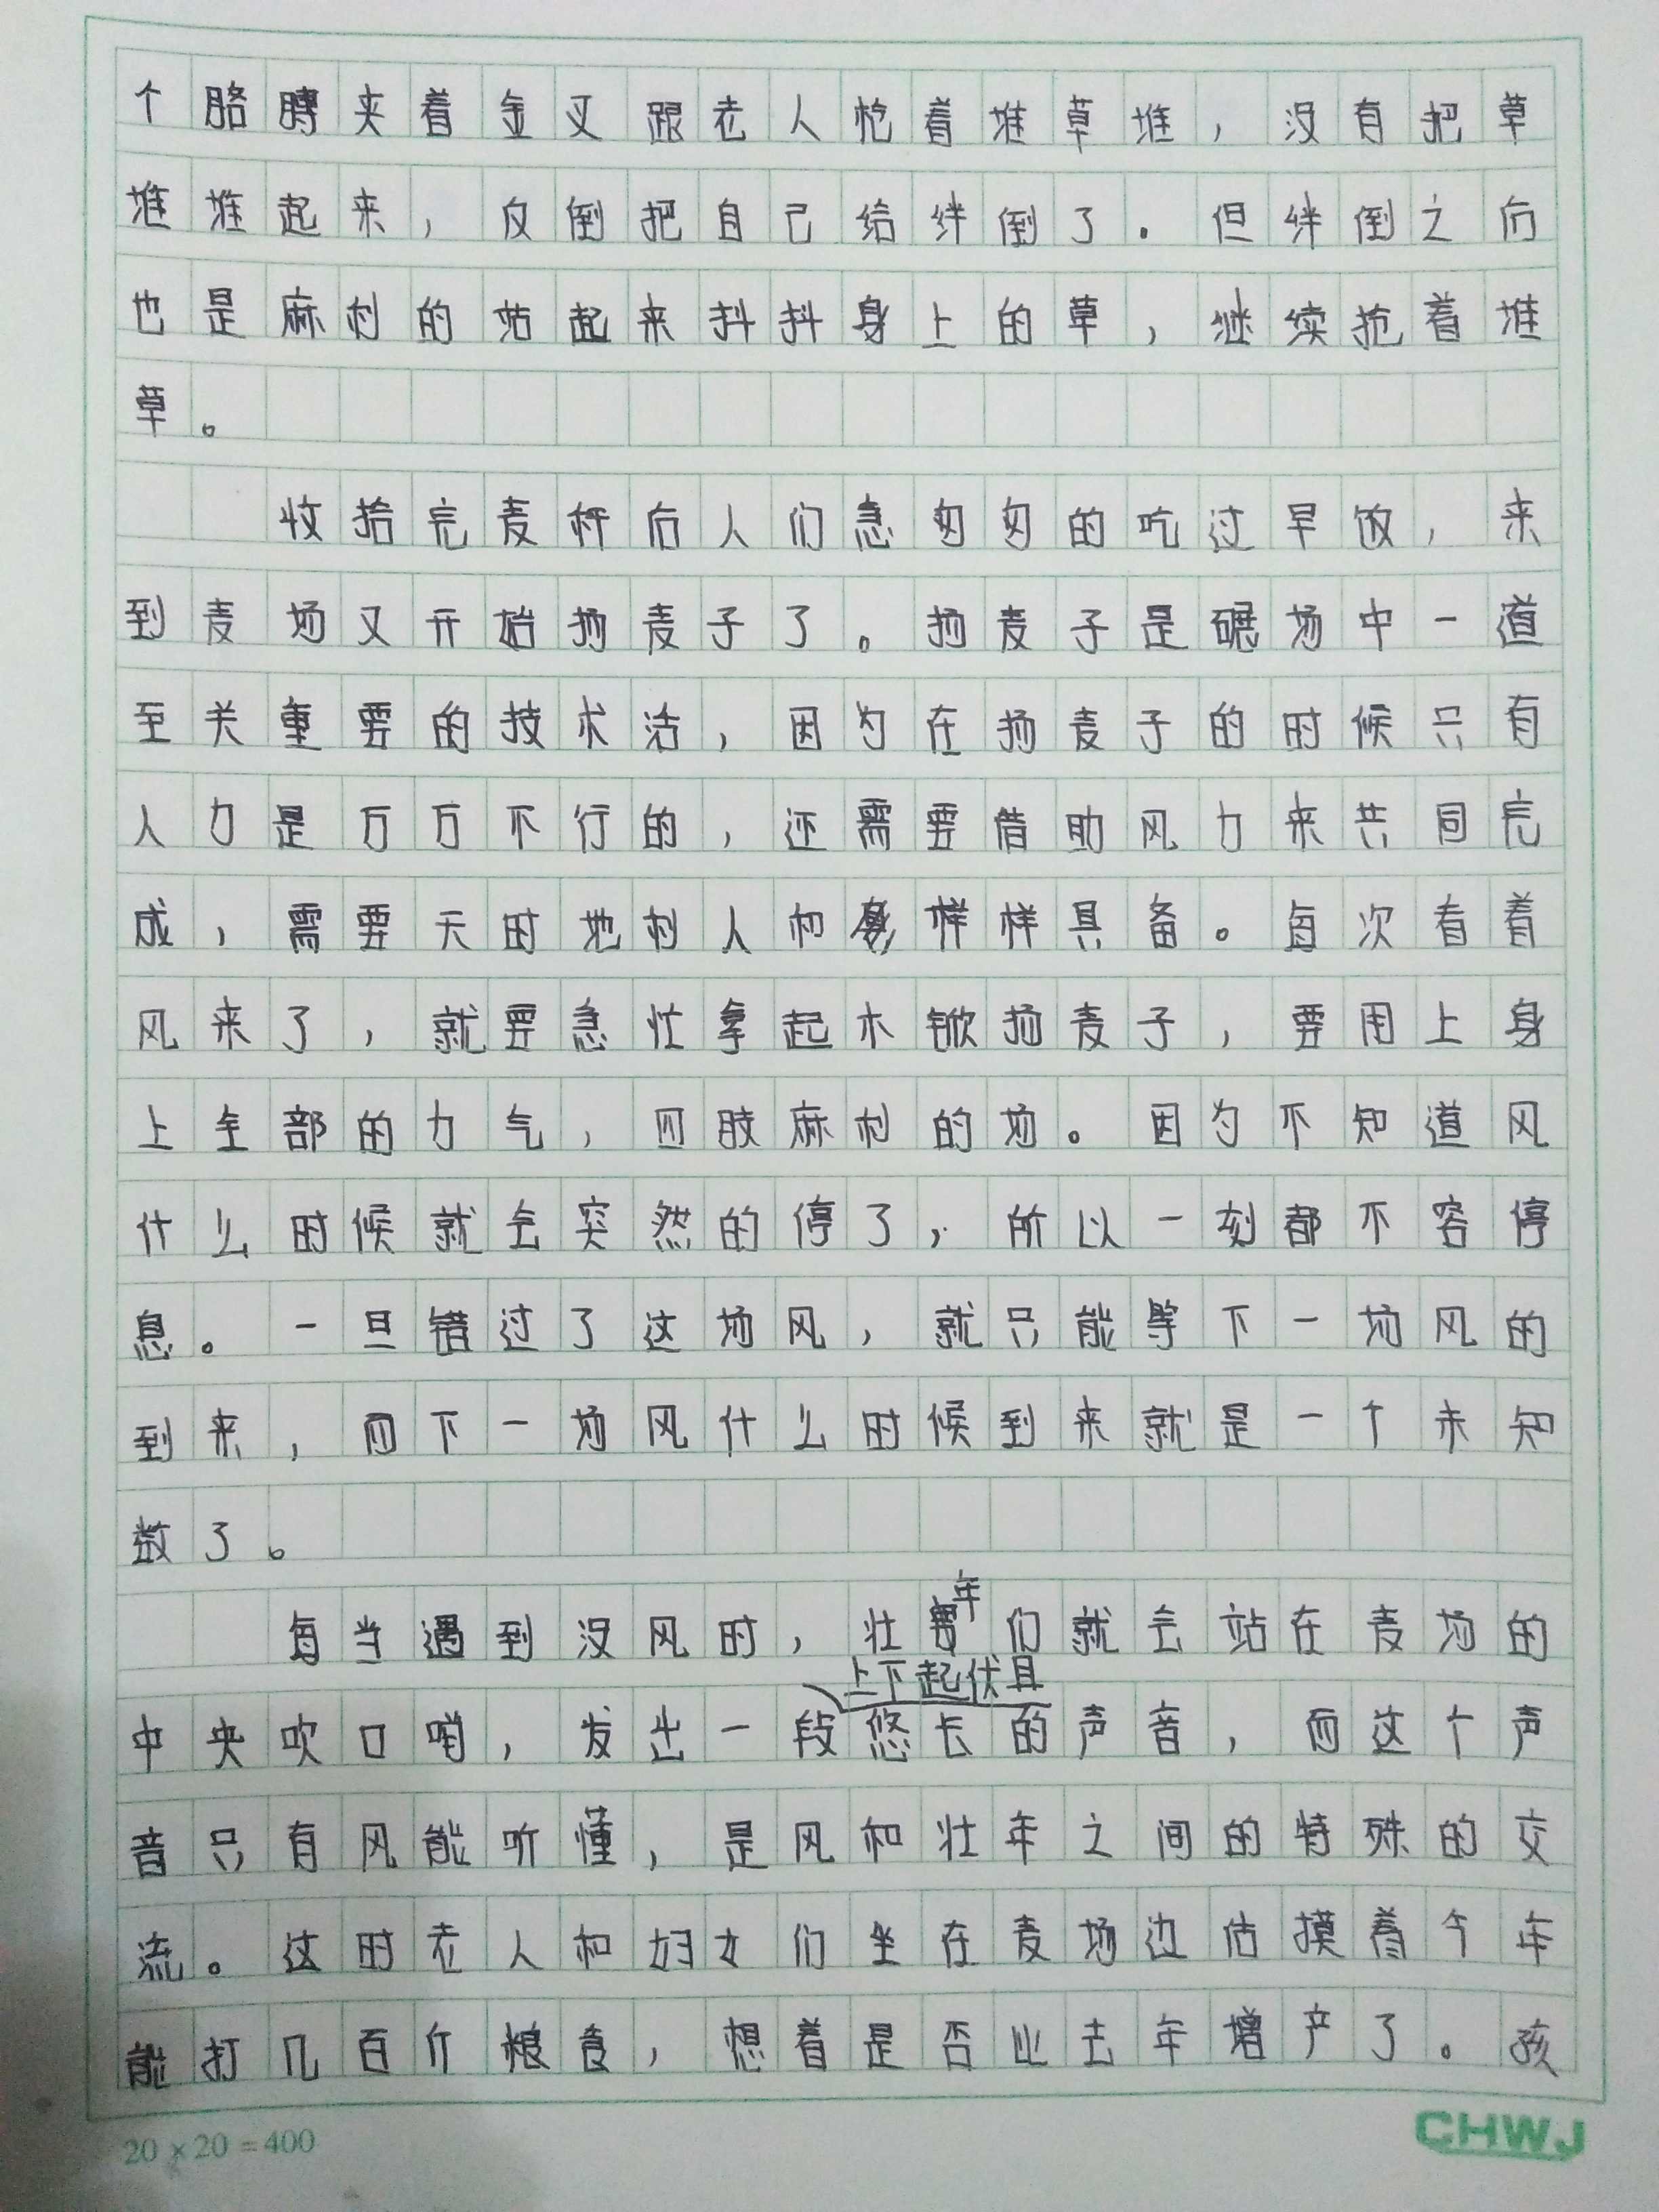 个胳膊夹着金叉跟老人抢着堆草堆，没有把草
堆堆起来，反倒把自己给绊倒了。但绊倒之后
也是麻利的站起来抖抖身上的草，继续抢着堆
草。
收拾完麦秆后人们急匆匆的吃过早饭，来
到麦场又开始扬麦子了。扬麦子是碾场中一道
至关重要的技术活，因为在扬麦子的时候只有
人力是万万不行的，还需要借助风力来共同完
成，需要天时地利人和样样具备。每次看着
风来了，就要急忙拿起木锨扬麦子，要用上身
上全部的力气，四肢麻利的扬。因为不知道风
什么时候就会突然的停了，所以一刻都不容停
息。一旦错过了这场风，就只能等下一场风的
到来，而下一场风什么时候到来就是一个未知
数了。
每当遇到没风时，壮年们就会站在麦场的
上下起伏且
中央吹口哨，发出一段悠长的声音，而这个声
音只有风能听懂，是风和壮年之间的特殊的交
流。这时老人和妇女们坐在麦场边估摸着今年
能打几百斤粮食，想着是否比去年增产了。孩
20×20=400
CHWJ